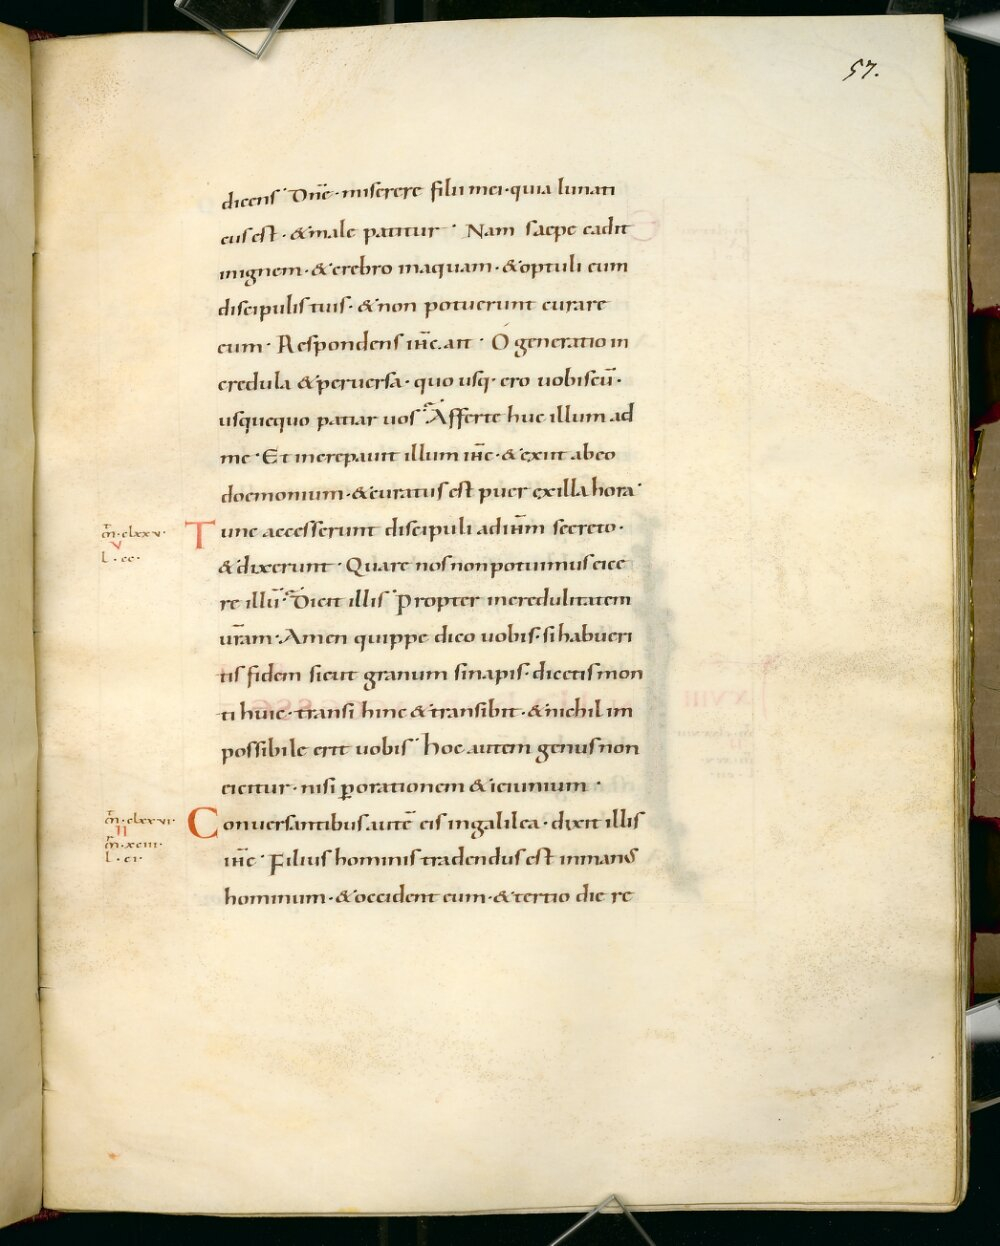 57.
dicens · Dn̄e · miserere filii mei · quia lunati
cus est · & male patitur · Nam saepe cadit
inignem · & crebro inaquam · & optuli eum
discipulis tuis · & non potuerunt curare
eum · Respondens ih̄c · ait · O generatio in
credula & peruersa · quo usq· ero uobiscū ·
usquequo patiar uos · Afferte huc illum ad
me · Et increpauit illum ih̄c · & exiit abeo
doemonium · & curatus est puer exilla hora ·
m̄ · clxxv ·
v
l · cc ·
Tunc accesserunt discipuli adih̄m secreto ·
& dixerunt · Quare nos non potuimus eice
re illū · Dicit illis · Propter incredulitatem
ur̄am · Amen quippe dico uobis · si habueri
tis fidem sicut granum sinapis · dicetis mon
ti huic · transi hinc & transibit · & nichil im
possibile erit uobis · hoc autem genus non
eicitur · nisi ꝑ orationem & ieiunium ·
m̄ · clxxvi ·
II
m̄ · xciii ·
l · ci ·
Conuersantibus autē eis ingalilea · dixit illis
ih̄c · Filius hominis tradendus est inmanus
hominum · & occident eum · & tertio die re